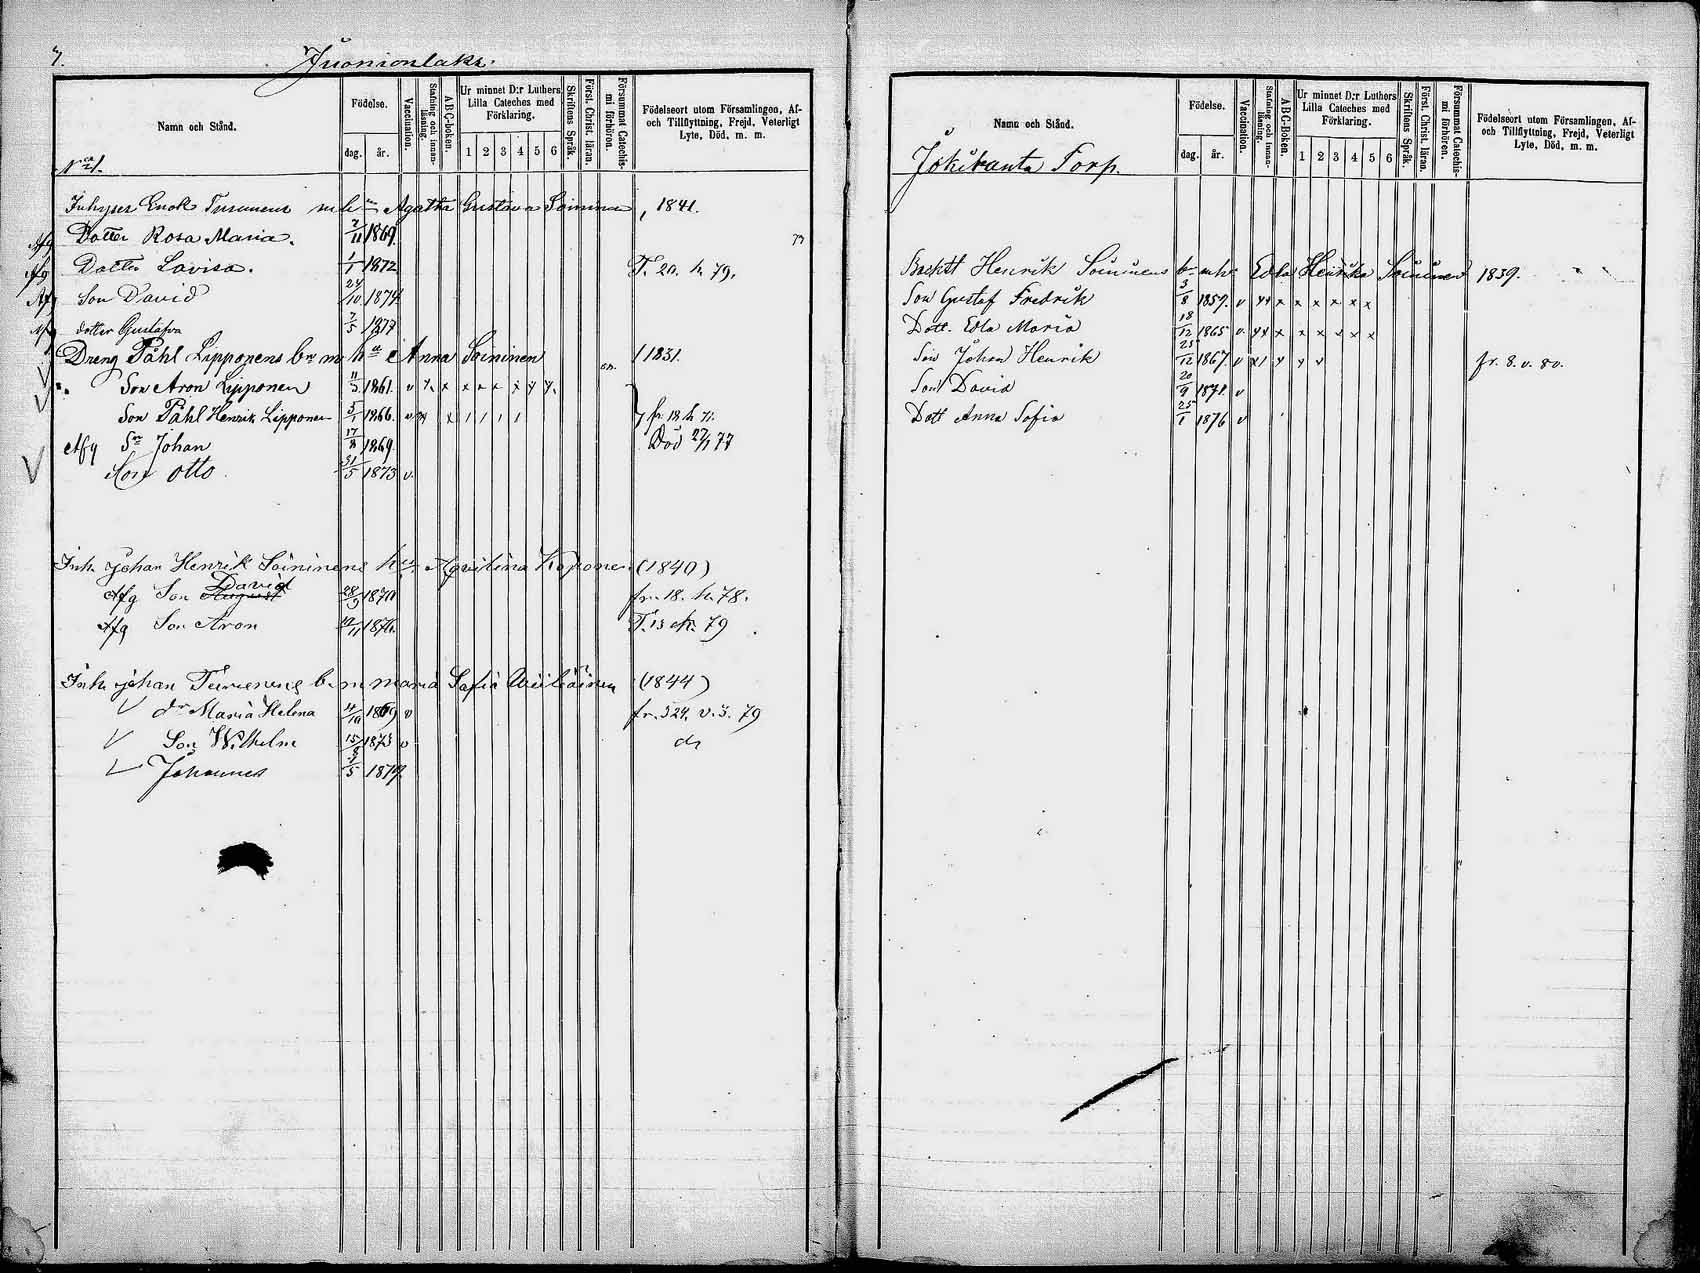 7.
Juonionlaks.
Namn och Stånd.
Födelse.
dag. år.
Vaccination.
Stafning och innan-läsning.
A-B-C-boken.
Ur minnet D:r Luthers Lilla Cateches med Förklaring.
1 2 3 4 5 6
Skriftens Språk.
Först. Christ. läran.
Försummat Catechis-mi förhören.
Födelseort utom Församlingen, Af- och Tillflyttning, Frejd, Veterligt Lyte, Död, m. m.
Inhyses Enok Turunens Agatha Gustava Soininen 1841.
Afg Dotter Rosa Maria. 2/11 1869.
Afg Dotter Lovisa. 1/1 1872 T. 20. h. 79.
Afg Son David 24/10 1874
Afg dotter Gustafva 7/5 1877
Dreng Påhl Lipponens br m ha Anna Soininen 1831.
Son Aron Lipponen 11/3 1861. v x x x x x
Son Påhl Henrik Lipponen 5/1 1866. v x x 1 1 1 1 fr. 18
Afg Sn Johan 17/8 1869. Död 27/1 77
Son Otto 31/5 1873 v.
Inh. Johan Henrik Soininens Agvilina Koponen (1840)
Afg Son David August 28/9 1870 fr. 18. h. 78.
Afg Son Aron 1876. T. 13 79
Inh. Johan Turunens b. m Maria Sofia (1844)
dr Maria Helena 4/10 1869 v fr. 324. v. 3. 79
Son Wilhelm 15/8 1873 v do
Johannes 2/5 1879.
Namn och Stånd.
Födelse.
dag. år.
Vaccination.
Stafning och innan-läsning.
A-B-C-Boken.
Ur minnet D:r Luthers Lilla Cateches med Förklaring.
1 2 3 4 5 6
Skriftens Språk.
Först. Christ. läran.
Försummat Catechis-mi förhören.
Födelseort utom Församlingen, Af- och Tillflyttning, Frejd, Veterligt Lyte, Död, m. m.
Jokiranta Torp.
Henrik Soininens Edla Henrika Soininen 1839.
Son Gustaf Fredrik 3/8 1859. v x x x x x x x x
Dott. Edla Maria 18/12 1865 v x x x x x x x x
Son Johan Henrik 25/12 1867. v fr. 8. v. 80.
Son David 20/9 1871. v
Dott Anna Sofia 25/1 1876 v